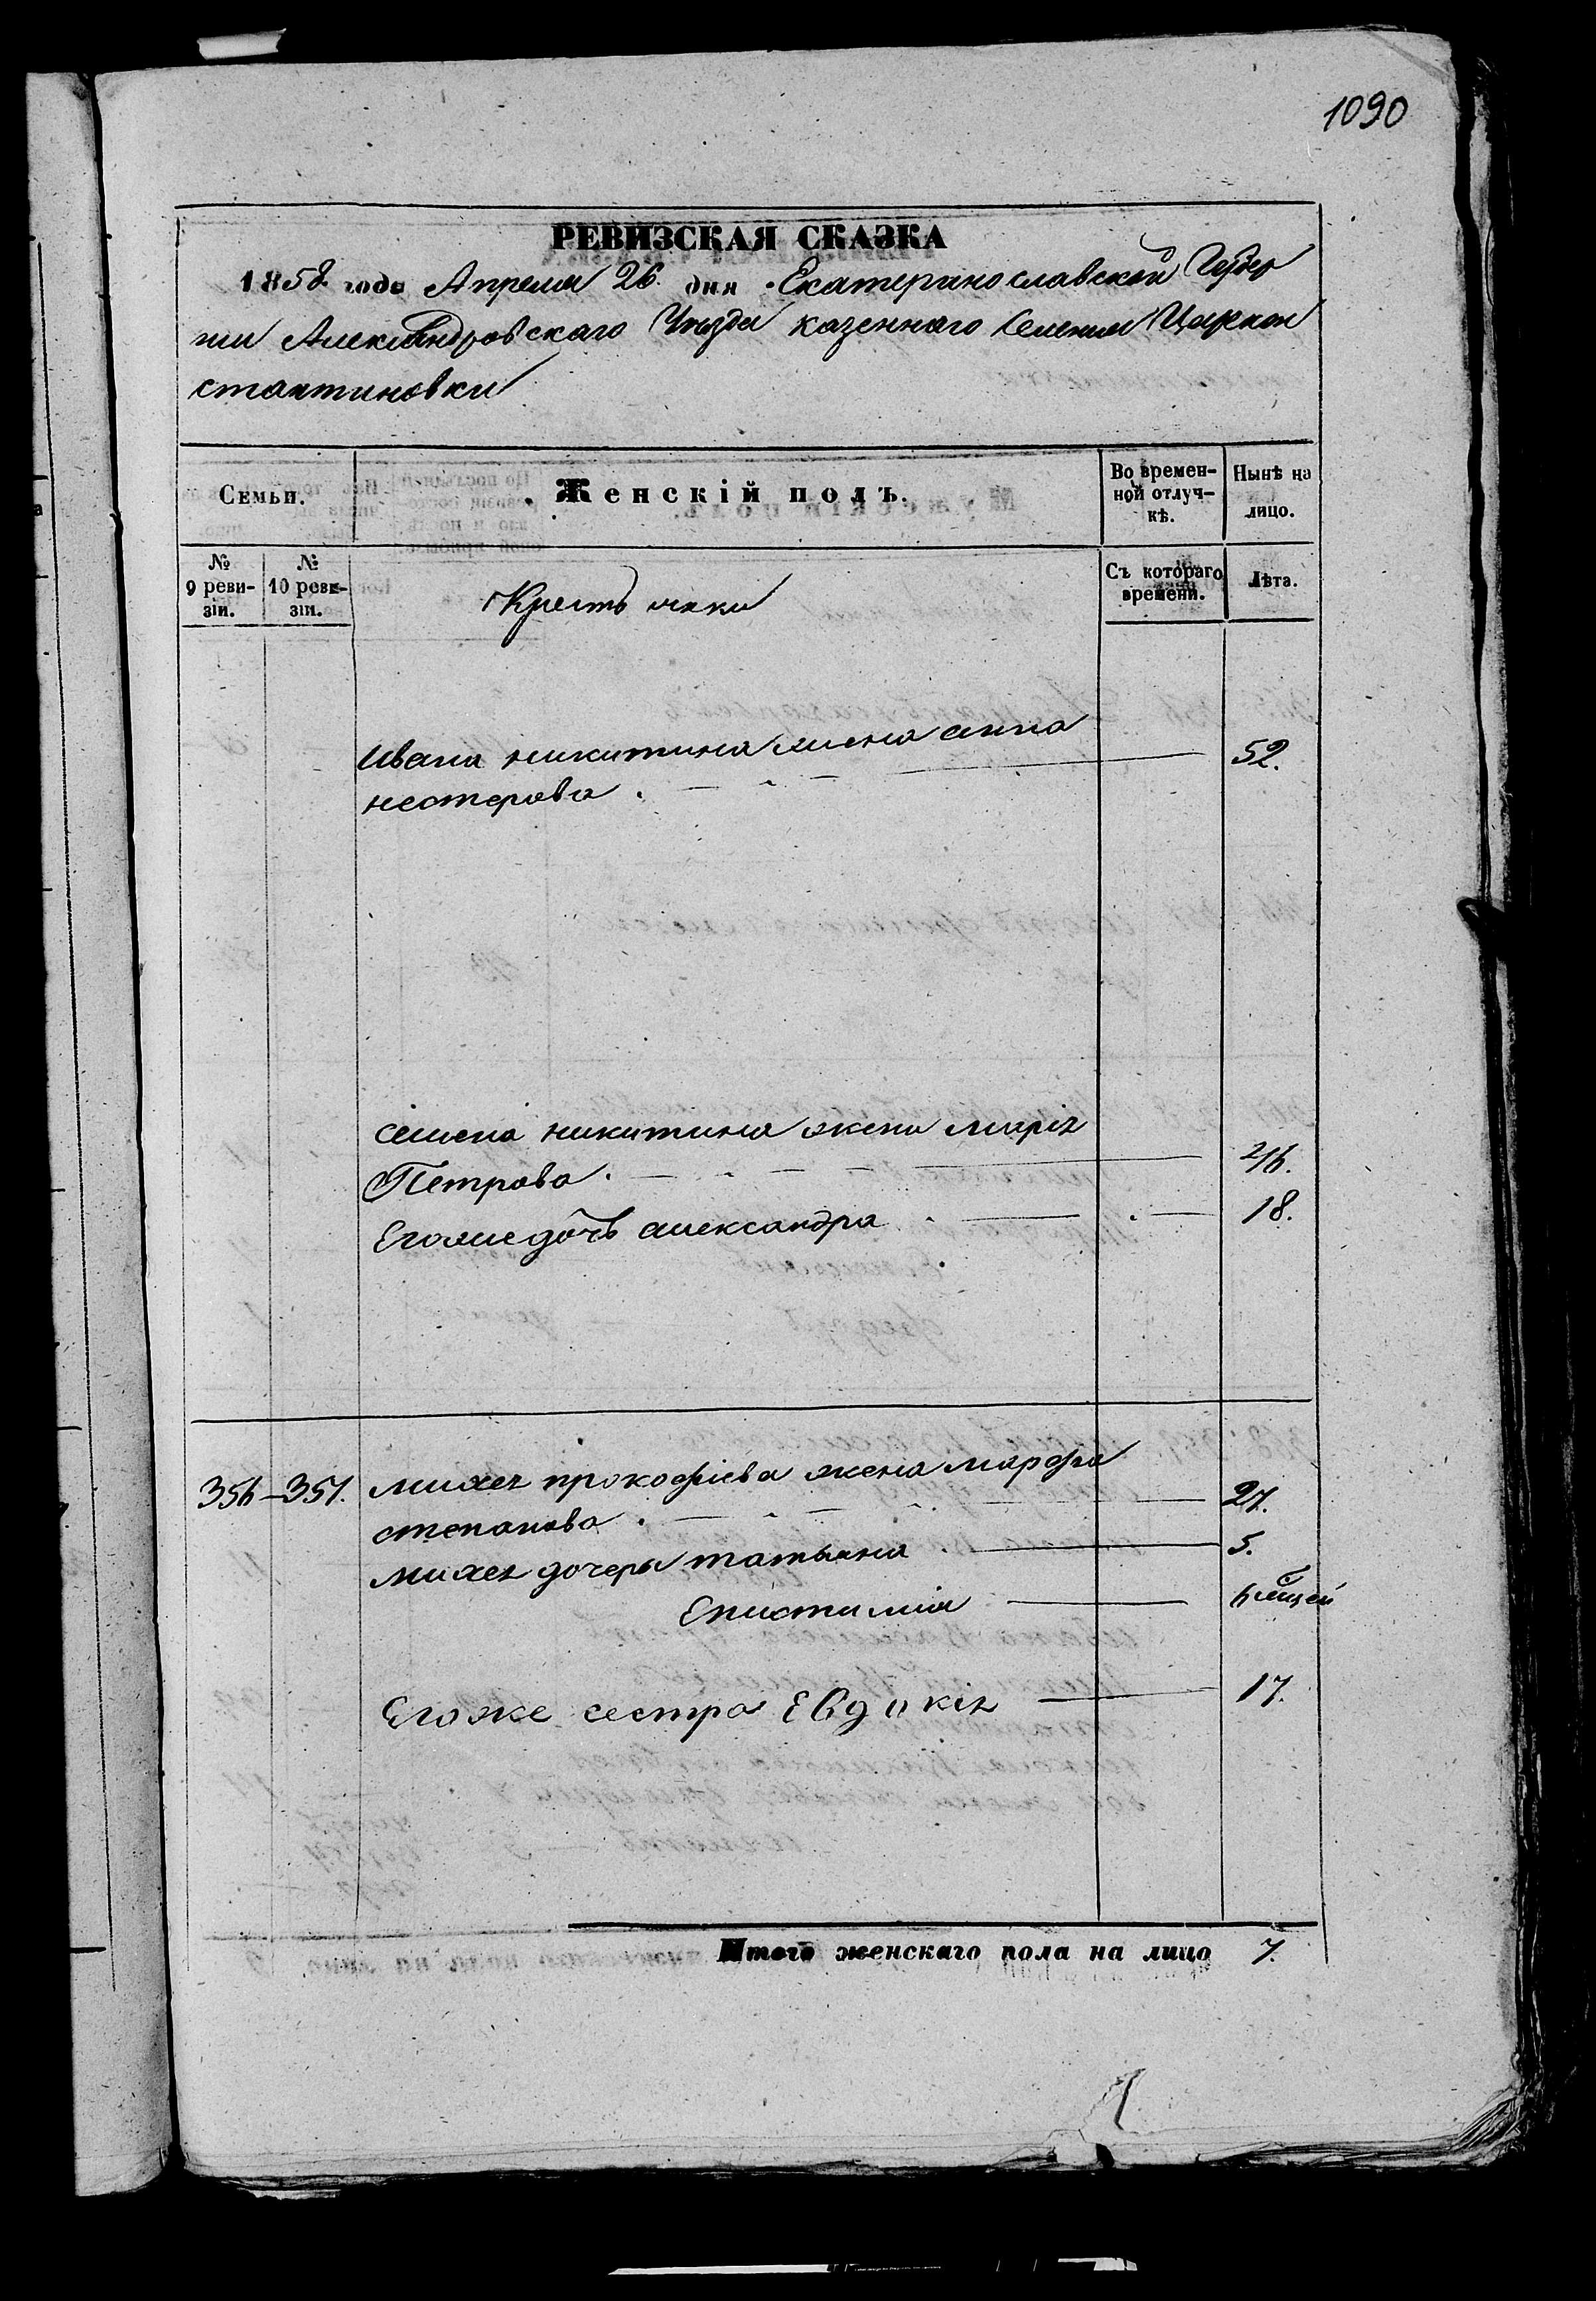 1090
РЕВИЗСКАЯ СКАЗКА
1858 года Апреля 26 дня Екатеринославской Губер
нии Александровскаго Уезда казеннаго Селения Царекон
стантиновки
Семьи. Женскій полъ. Во времен- Нынѣ на
ной отлуч- лицо.
кѣ.
№ № Съ котораго Лѣта.
9 реви- 10 реви- времени.
зіи. зіи.
Крестьянки
Ивана никитина жена анна 52.
нестерова.
семена никитина жена маріꙗ
Петрова. 46.
Егоже дочь александра 18.
356–357. михея прокофіева жена марфа
степанова. 27.
михея дочеры татьяна 5.
Епистимия 6 месцей
Егоже сестра Евдокіꙗ 17.
Итого женскаго пола на лицо 7.